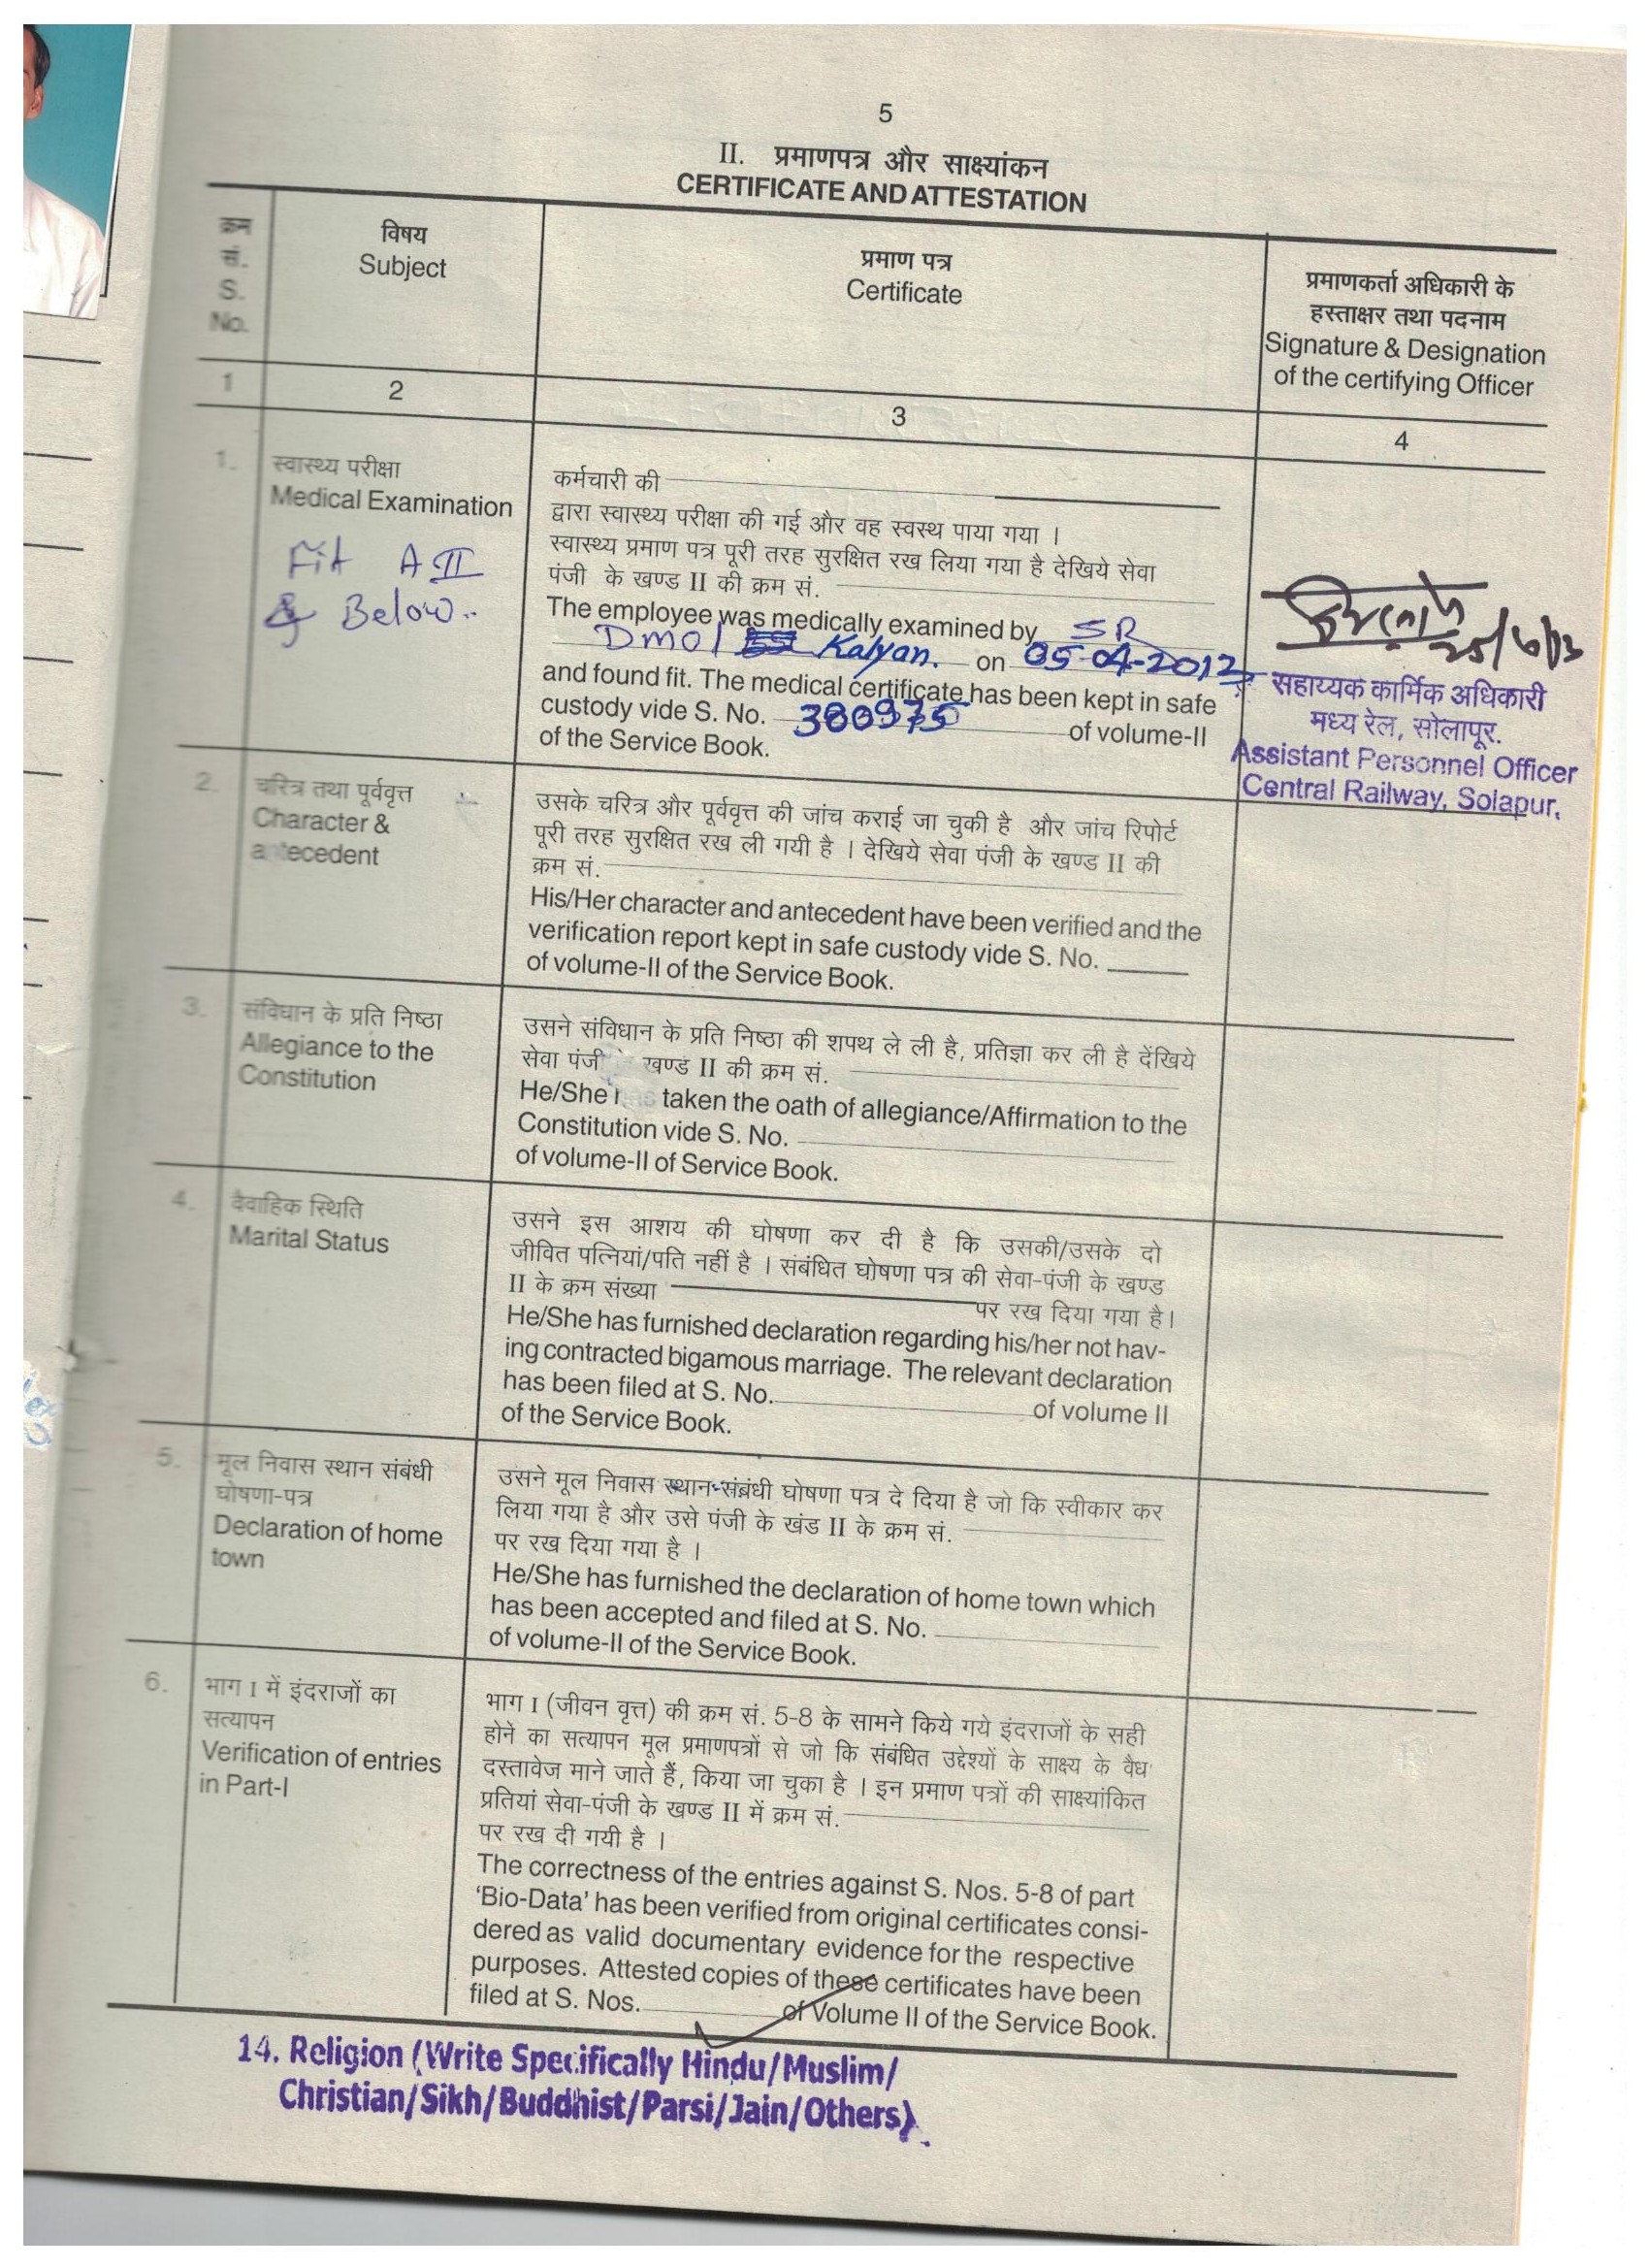 5
II. प्रमाणपत्र और साक्ष्यांकन
CERTIFICATE AND ATTESTATION
क्रम
सं.
S.
No.
विषय
Subject
प्रमाण पत्र
Certificate
प्रमाणकर्ता अधिकारी के
हस्ताक्षर तथा पदनाम
Signature & Designation
of the certifying Officer
1
2
3
4
1.
स्वास्थ्य परीक्षा
Medical Examination
Fit A II
& Below..
कर्मचारी की
द्वारा स्वास्थ्य परीक्षा की गई और वह स्वस्थ पाया गया ।
स्वास्थ्य प्रमाण पत्र पूरी तरह सुरक्षित रख लिया गया है देखिये सेवा
पंजी के खण्ड II की क्रम सं.
The employee was medically examined by SR
DMO/ Kalyan. on 05-04-2012
and found fit. The medical certificate has been kept in safe
custody vide S. No. 380975 of volume-II
of the Service Book.
सहाय्यक कार्मिक अधिकारी
मध्य रेल, सोलापूर.
Assistant Personnel Officer
Central Railway, Solapur.
2.
चरित्र तथा पूर्ववृत्त
Character &
antecedent
उसके चरित्र और पूर्ववृत्त की जांच कराई जा चुकी है और जांच रिपोर्ट
पूरी तरह सुरक्षित रख ली गयी है । देखिये सेवा पंजी के खण्ड II की
क्रम सं.
His/Her character and antecedent have been verified and the
verification report kept in safe custody vide S. No.
of volume-II of the Service Book.
3.
संविधान के प्रति निष्ठा
Allegiance to the
Constitution
उसने संविधान के प्रति निष्ठा की शपथ ले ली है, प्रतिज्ञा कर ली है देंखिये
सेवा पंजी खण्ड II की क्रम सं.
He/She has taken the oath of allegiance/Affirmation to the
Constitution vide S. No.
of volume-II of Service Book.
4.
वैवाहिक स्थिति
Marital Status
उसने इस आशय की घोषणा कर दी है कि उसकी/उसके दो
जीवित पत्नियां/पति नहीं है । संबंधित घोषणा पत्र की सेवा-पंजी के खण्ड
II के क्रम संख्या पर रख दिया गया है।
He/She has furnished declaration regarding his/her not hav-
ing contracted bigamous marriage. The relevant declaration
has been filed at S. No. of volume II
of the Service Book.
5.
मूल निवास स्थान संबंधी
घोषणा-पत्र
Declaration of home
town
उसने मूल निवास स्थान-संबंधी घोषणा पत्र दे दिया है जो कि स्वीकार कर
लिया गया है और उसे पंजी के खंड II के क्रम सं.
पर रख दिया गया है ।
He/She has furnished the declaration of home town which
has been accepted and filed at S. No.
of volume-II of the Service Book.
6.
भाग I में इंदराजों का
सत्यापन
Verification of entries
in Part-I
भाग I (जीवन वृत्त) की क्रम सं. 5-8 के सामने किये गये इंदराजों के सही
होने का सत्यापन मूल प्रमाणपत्रों से जो कि संबंधित उद्देश्यों के साक्ष्य के वैध
दस्तावेज माने जाते हैं, किया जा चुका है । इन प्रमाण पत्रों की साक्ष्यांकित
प्रतियां सेवा-पंजी के खण्ड II में क्रम सं.
पर रख दी गयी है ।
The correctness of the entries against S. Nos. 5-8 of part
‘Bio-Data’ has been verified from original certificates consi-
dered as valid documentary evidence for the respective
purposes. Attested copies of these certificates have been
filed at S. Nos. of Volume II of the Service Book.
14. Religion (Write Specifically Hindu/Muslim/
Christian/Sikh/Buddhist/Parsi/Jain/Others).